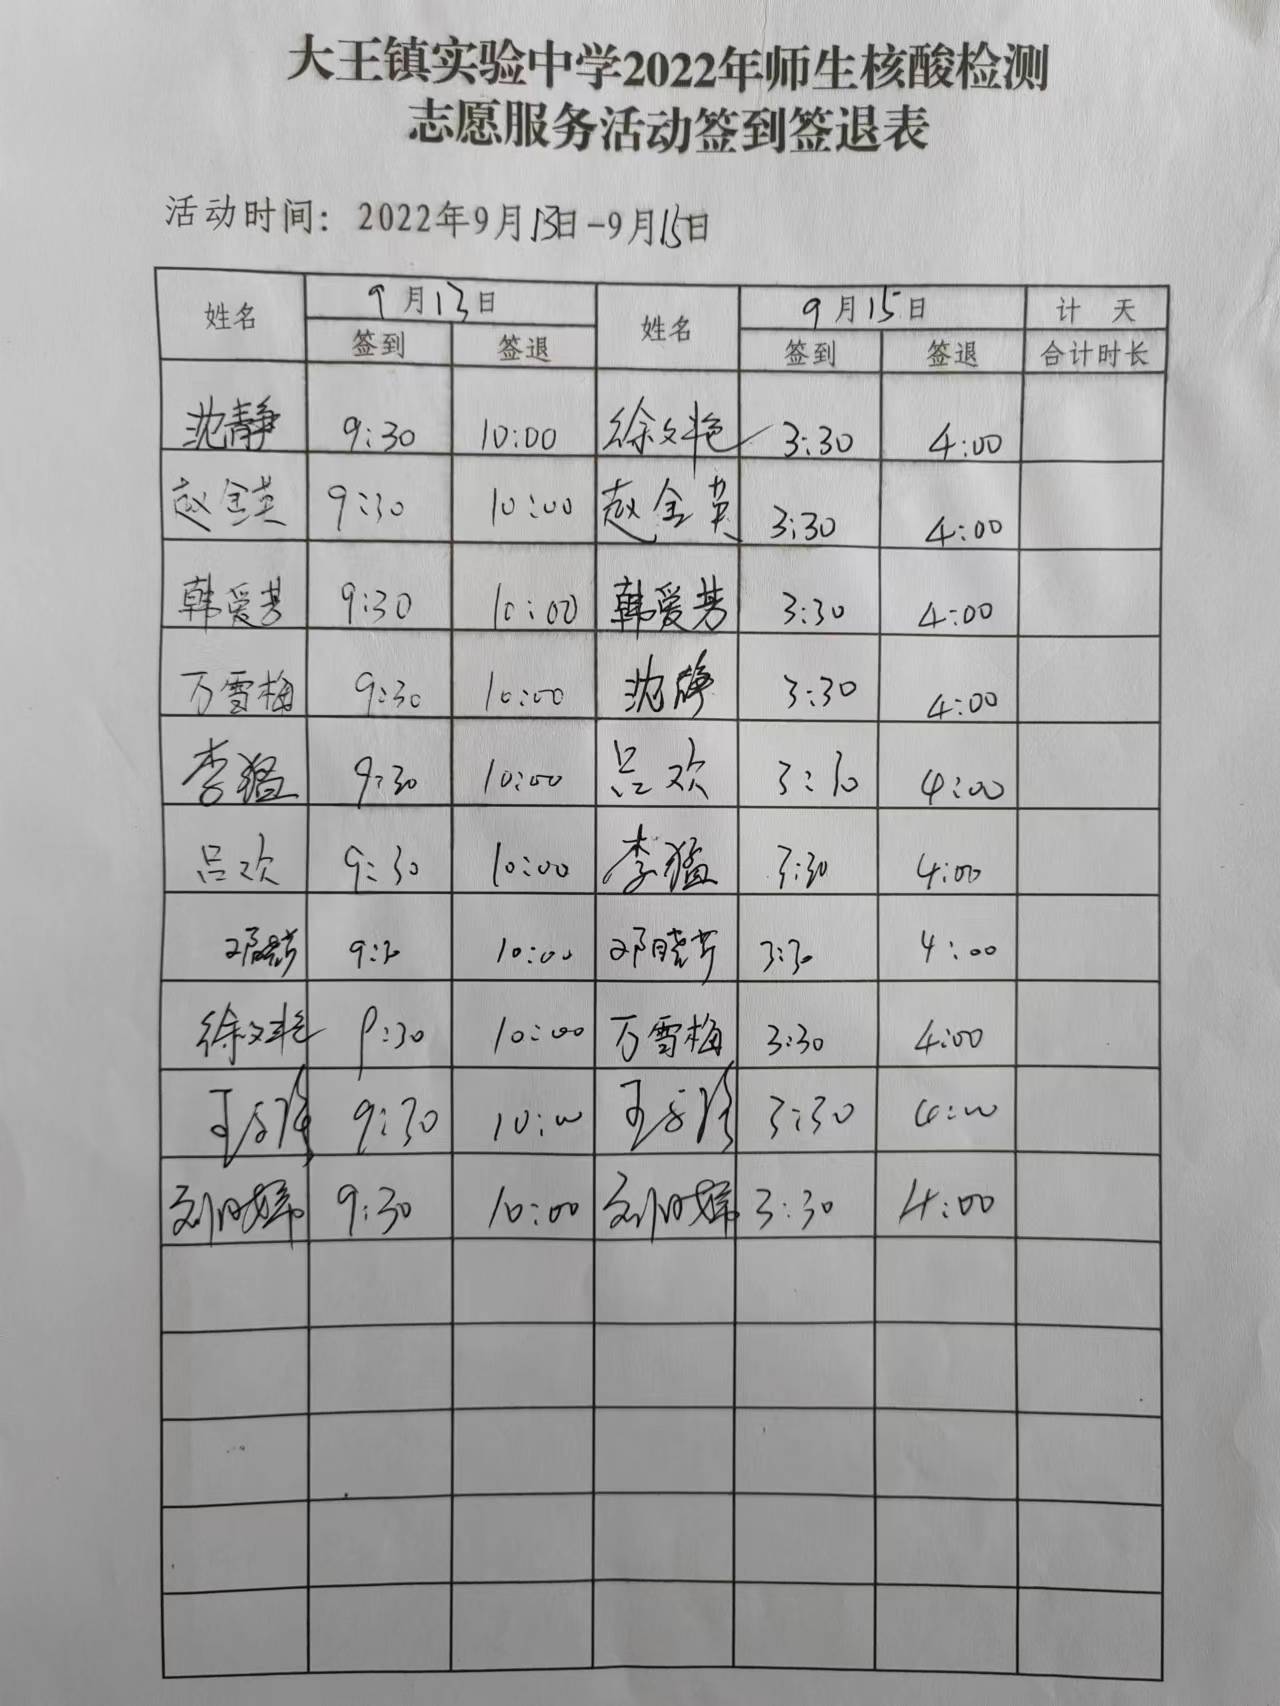 大王镇实验中学2022年师生核酸检测
志愿服务活动签到签退表
活动时间：2022年9月13日-9月15日
姓名 9月13日 姓名 9月15日 计 天
签到 签退 签到 签退 合计时长
沈静 9:30 10:00 徐文艳 3:30 4:00
赵金英 9:30 10:00 赵金英 3:30 4:00
韩爱芳 9:30 10:00 韩爱芳 3:30 4:00
万雪梅 9:30 10:00 沈静 3:30 4:00
李猛 9:30 10:00 吕欢 3:30 4:00
吕欢 9:30 10:00 李猛 3:30 4:00
邓晓芳 9:30 10:00 邓晓芳 3:30 4:00
徐文艳 9:30 10:00 万雪梅 3:30 4:00
王 9:30 10:00 王 3:30 4:00
刘 9:30 10:00 刘 3:30 4:00